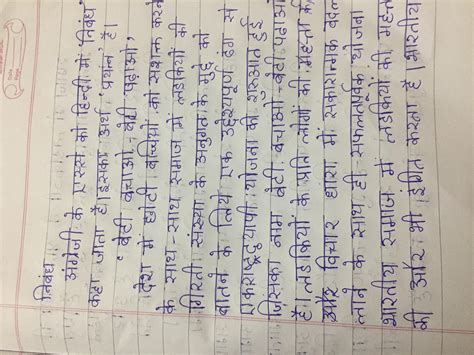 निबंध
अंग्रेजी के एस्से को हिन्दी में 'निबंध'
कहा जाता है। इसका अर्थ प्रधान है।
'बेटी बचाओ - बेटी पढ़ाओ'
देश में छोटी बच्चियों को सशक्त करने
के साथ-साथ समाज में लडकियों की
गिरती संख्या के अनुपात के मुद्दे को
के लिये एक उद्देश्यपूर्ण ढंग से
एकराष्ट्रव्यापी योजना की शुरुआत हुई
जिसका नाम बेटी बचाओ-बेटी पढ़ाओ
है। लडकियों के प्रति लोगों की महत्ता के
और विचार धारा में सकारात्मक बदल
लाने के साथ ही सफलतापूर्वक योजना
भारतीय समाज में लडकियों की महत्त
की और भी इंगित करता है। भारतीय